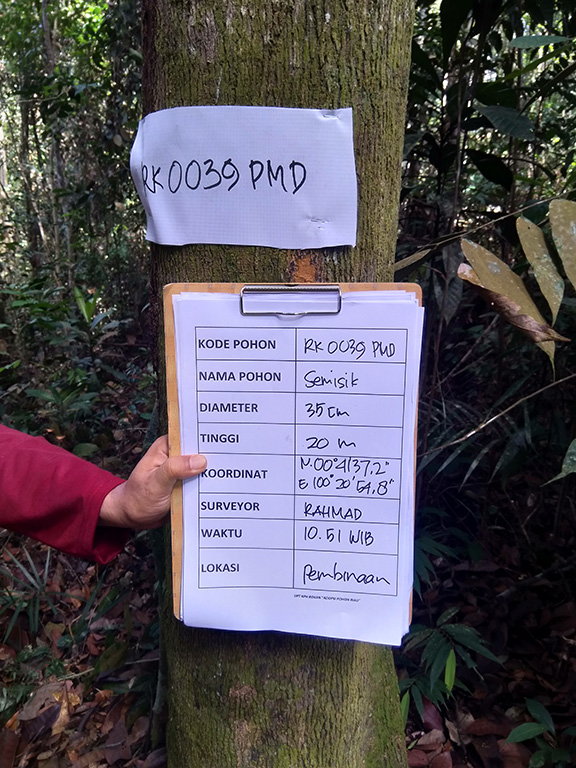 RK0039 PMD
KODE POHON RK 0039 PMD
NAMA POHON Semisik
DIAMETER 35 cm
TINGGI 20 m
KOORDINAT N.00°41'37,2"
E 100°20'54,8"
SURVEYOR RAHMAD
WAKTU 10.51 WIB
LOKASI Pembinaan
"ADOPSI POHON RIAU"